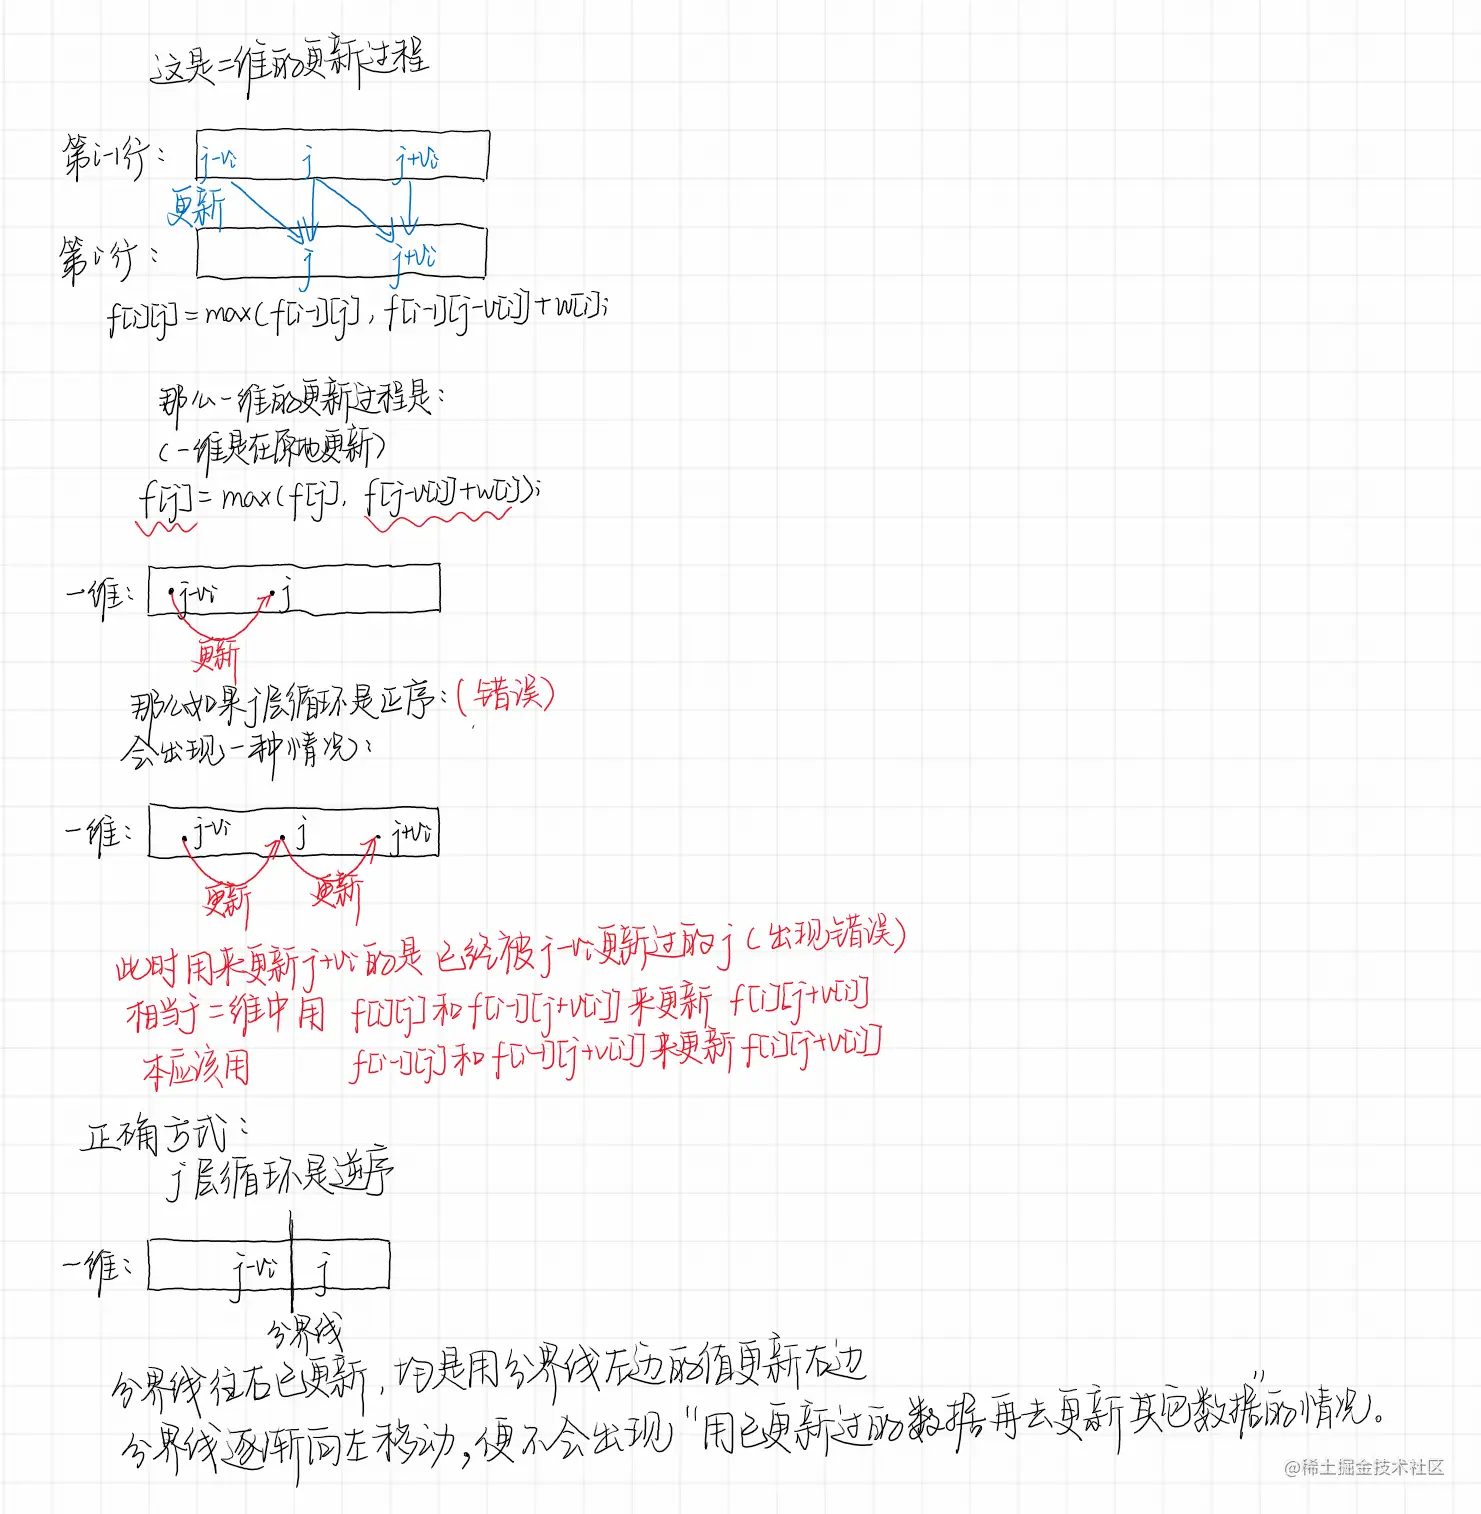 这是二维的更新过程
第i-1行： j-vi j j+vi
更新
第i行： j j+vi
f[i][j]=max(f[i-1][j],f[i-1][j-v[i]]+w[i];
那么一维的更新过程是：
（一维是在原地更新）
f[j]=max(f[j],f[j-v[i]]+w[i]);
一维： j-vi j
更新
那么如果j层循环是正序：（错误）
会出现一种情况：
一维： j-vi j j+vi
更新 更新
此时用来更新j+vi的是已经被j-vi更新过的j（出现错误）
相当于二维中用 f[i][j]和f[i-1][j+v[i]]来更新 f[i][j+v[i]]
本应该用 f[i-1][j]和f[i-1][j+v[i]]来更新f[i][j+v[i]]
正确方式：
j层循环是逆序
一维： j-vi j
分界线
分界线往右已更新，均是用分界线左边的值更新右边
分界线逐渐向左移动，便不会出现“用已更新过的数据再去更新其它数据”的情况。
@稀土掘金技术社区